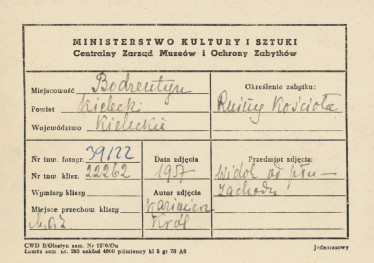 MINISTERSTWO KULTURY I SZTUKI
Centralny Zarząd Muzeów i Ochrony Zabytków
Miejscowość Bodzentyn
Powiat Kielecki
Województwo Kieleckie
Określenie zabytku:
Ruiny Kościoła
Nr inw. fotogr. 39122
Nr inw. klisz. 22262
Wymiary kliszy
Miejsce przechow kliszy
Data zdjęcia
1957
Autor zdjęcia
Kazimierz
Król
Przedmiot zdjęcia:
Widok od płn-
zachodu
CWD B/Olsztyn zam. Nr
Jednorazowy